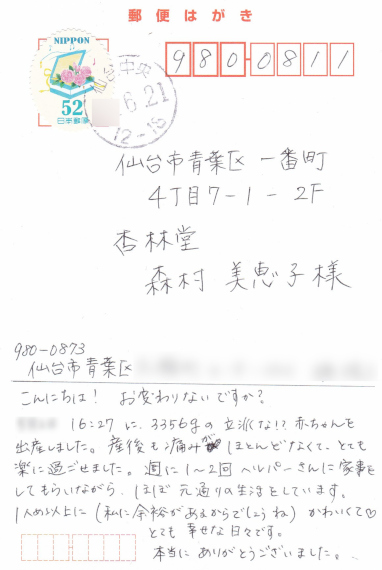 郵便はがき
NIPPON
52
日本郵便
中央
6.21
12-18
980-0811
仙台市青葉区一番町
4丁目7-1-2F
杏林堂
森村 美恵子様
980-0873
仙台市青葉区
こんにちは! お変わりないですか?
16:27に、3356gの立派な!?赤ちゃんを
出産しました。産後も痛みがほとんどなくて、とても
楽に過ごせました。週に1〜2回ヘルパーさんに家事を
してもらいながら、ほぼ元通りの生活をしています。
1人め以上に(私に余裕があるからでしょうね)かわいくて♡
とても幸せな日々です。
本当にありがとうございました。